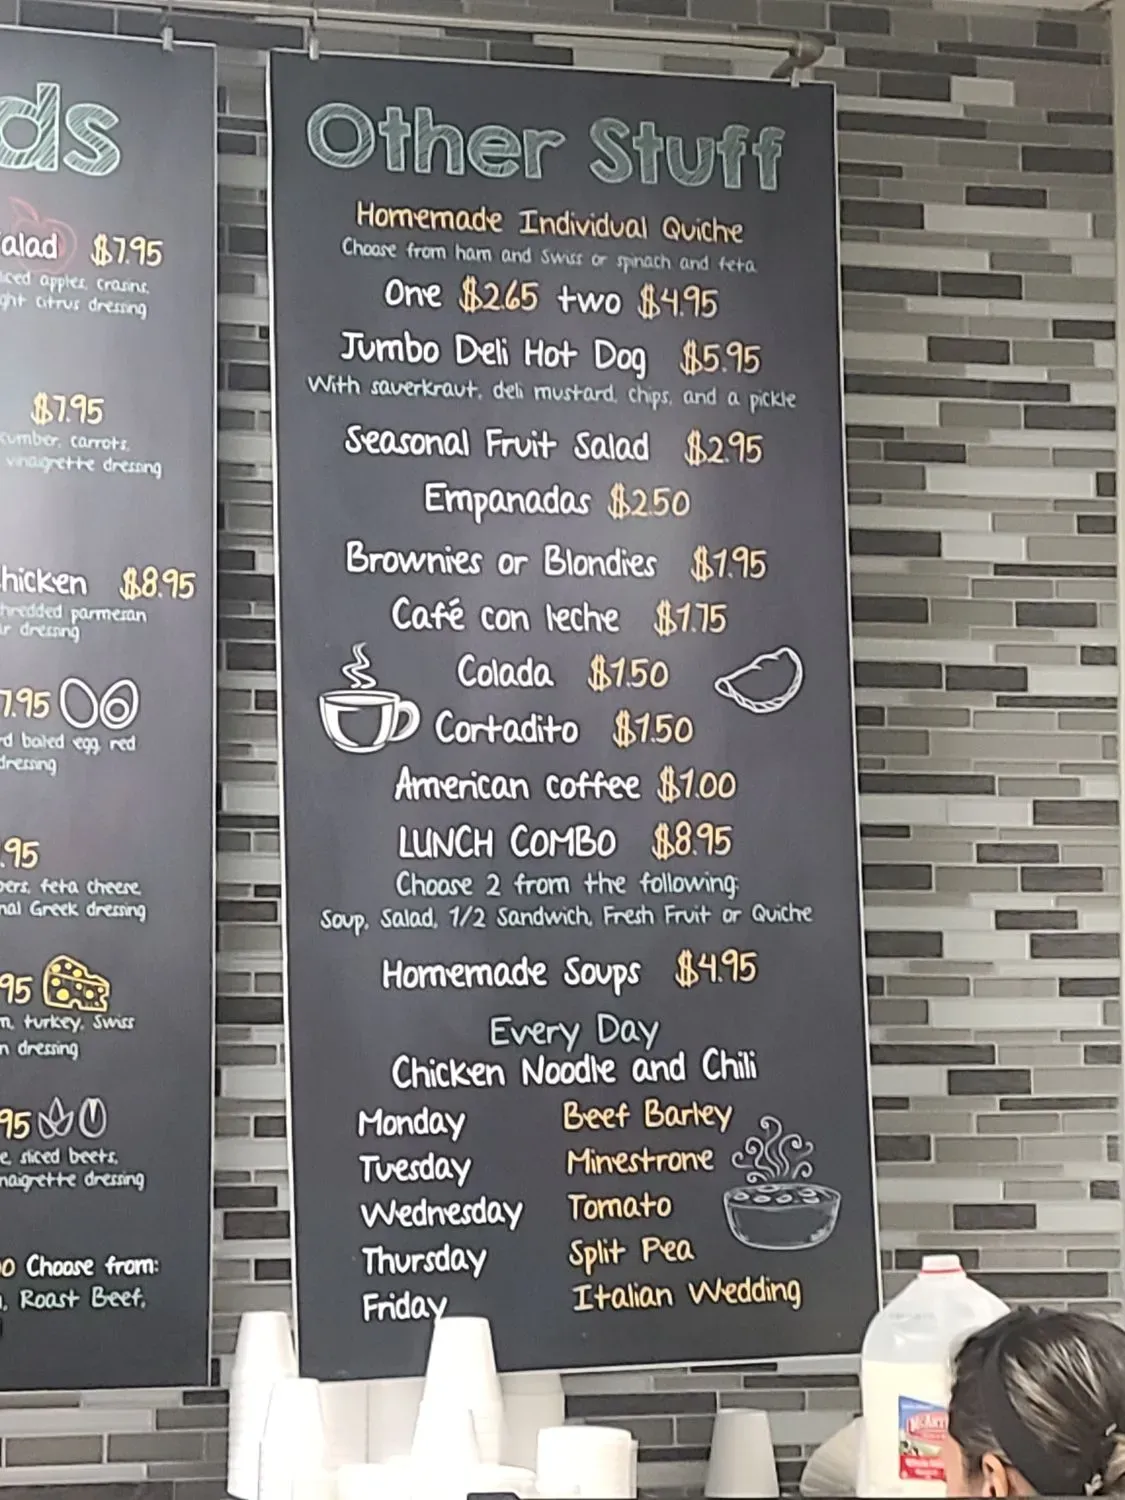 ds
alad $7.95
iced apples, crasins,
ght citrus dressing
$7.95
cumber, carrots,
vinaigrette dressing
hicken $8.95
hredded parmesan
r dressing
7.95
rd boiled egg, red
dressing
.95
pers, feta cheese,
nal Greek dressing
95
m, turkey, Swiss
n dressing
95
e, sliced beets,
naigrette dressing
0 Choose from:
, Roast Beef,
Other Stuff
Homemade Individual Quiche
Choose from ham and Swiss or spinach and feta
One $2.65 two $4.95
Jumbo Deli Hot Dog $5.95
With sauerkraut, deli mustard, chips, and a pickle
Seasonal Fruit Salad $2.95
Empanadas $2.50
Brownies or Blondies $1.95
Café con leche $1.75
Colada $1.50
Cortadito $1.50
American coffee $1.00
LUNCH COMBO $8.95
Choose 2 from the following:
Soup, Salad, 1/2 Sandwich, Fresh Fruit or Quiche
Homemade Soups $4.95
Every Day
Chicken Noodle and Chili
Monday Beef Barley
Tuesday Minestrone
Wednesday Tomato
Thursday Split Pea
Friday Italian Wedding